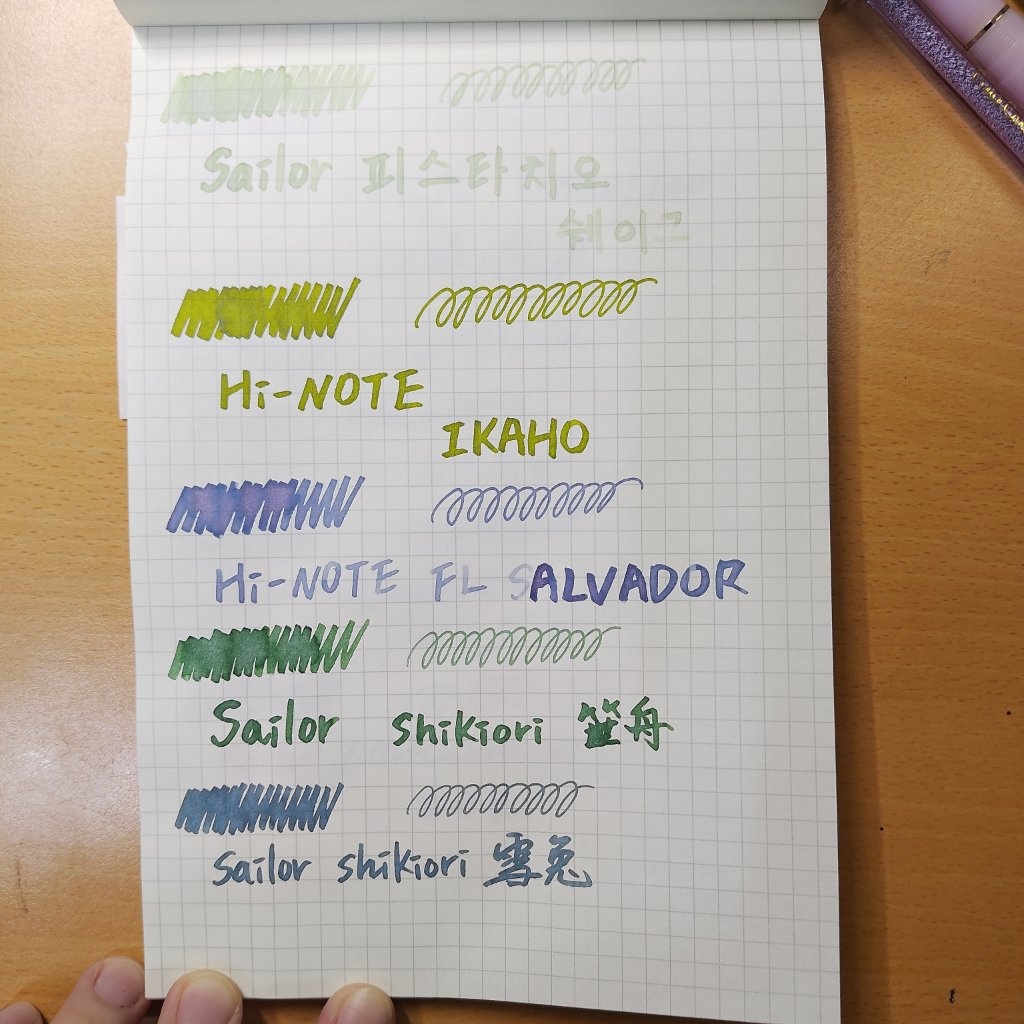 Sailor 피스타치오
쉐이크
Hi-NOTE
IKAHO
Hi-NOTE FL SALVADOR
Sailor shikiori 笹舟
Sailor shikiori 雪兎